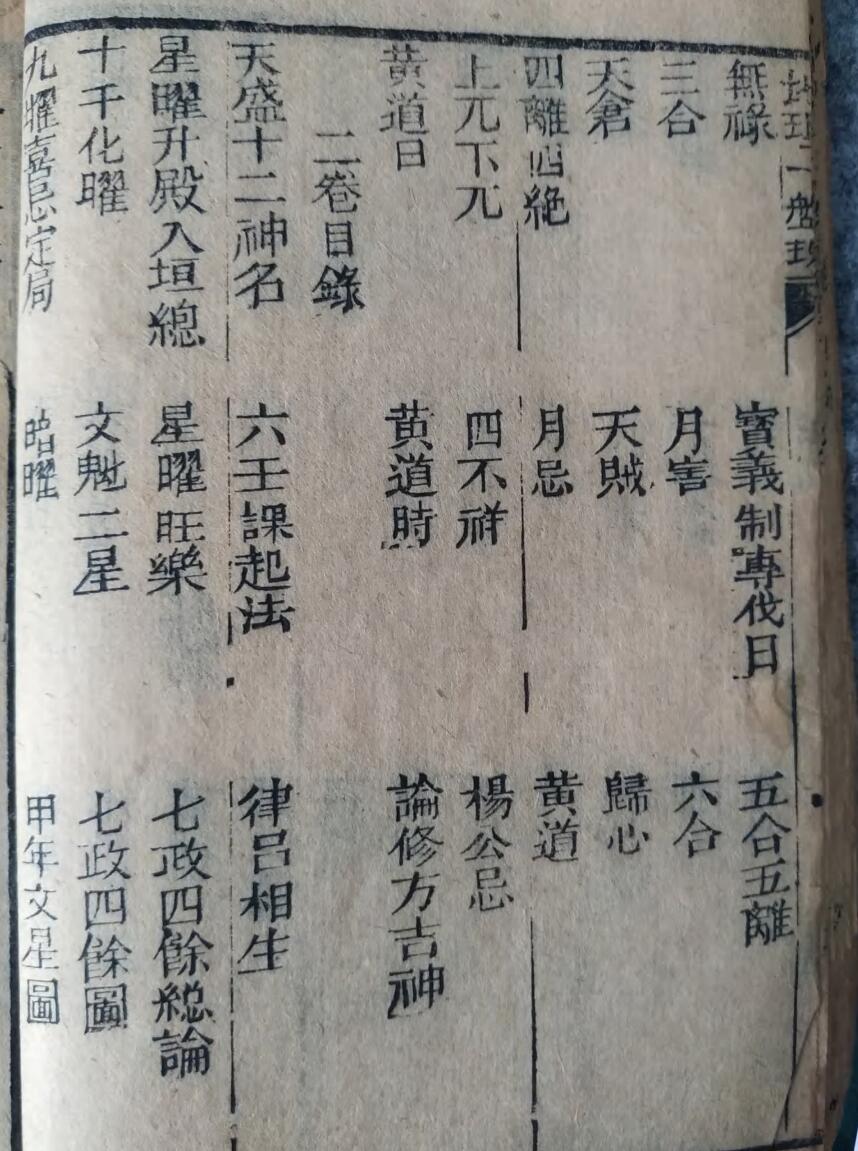 無祿 寶義制專伐日 五合五離
三合 月害 六合
天倉 天賊 歸心
四離四絶 月忌 黄道
上元下元 四不祥 楊公忌
黄道日 黄道時 論修方吉神
二卷目錄
天盛十二神名 六壬課起法 律呂相生
星曜升殿入垣總 星曜旺樂 七政四餘総論
十干化曜 文魁二星 七政四餘圖
九曜喜忌定局 暗曜 甲年文星圖